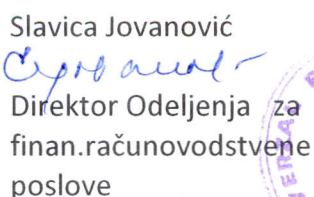 Slavica Jovanović
Direktor Odeljenja za
finan.računovodstvene
poslove